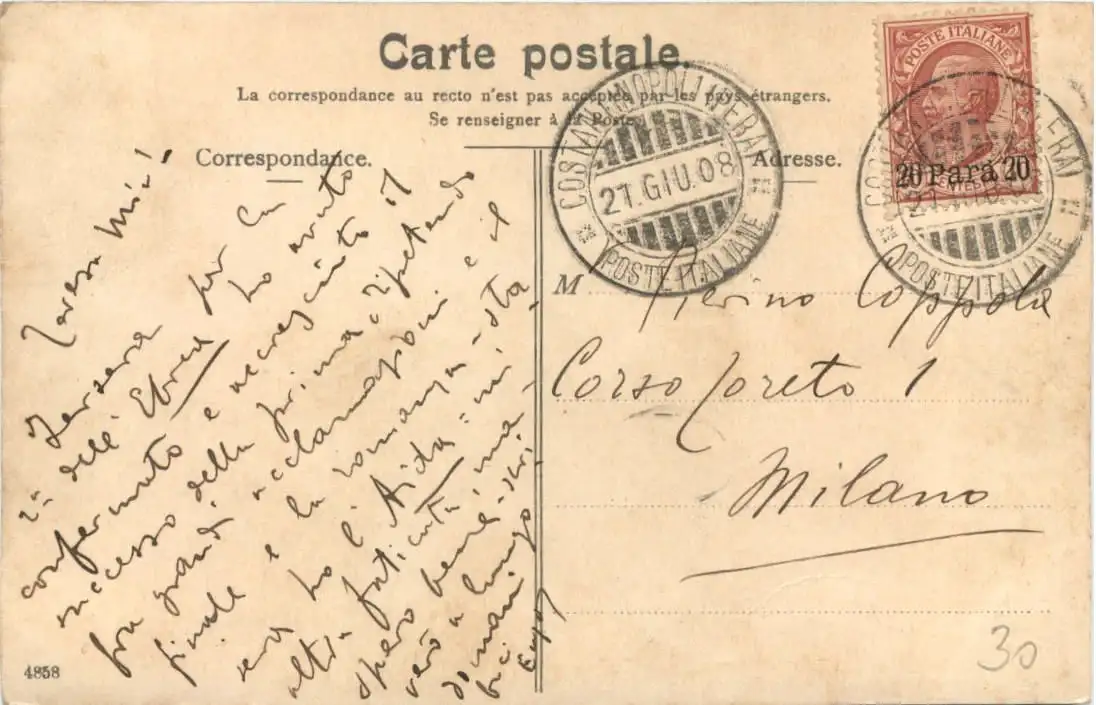 Carte postale.
La correspondance au recto n'est pas acceptée par les pays étrangers.
Se renseigner à la Poste.
Correspondance.
Adresse.
POSTE ITALIANE
20 Para 20
COSTANTINOPOLI (PERA)
21. GIU. 08
POSTE ITALIANE
COSTANTINOPOLI (PERA)
21. GIU. 08
POSTE ITALIANE
mia!
Iersera per la
2ª dell'Ebrea ho avuto
confermato e accresciuto il
successo della prima ripetendo
fra grandi acclamazioni e il
finale e la romanza - sta
sera ho l'Aida = un'
altra faticata ma
spero bene - scri
verò a lungo
domani
baci
M Pierino Coppola
Corso Loreto 1
Milano
4858
30